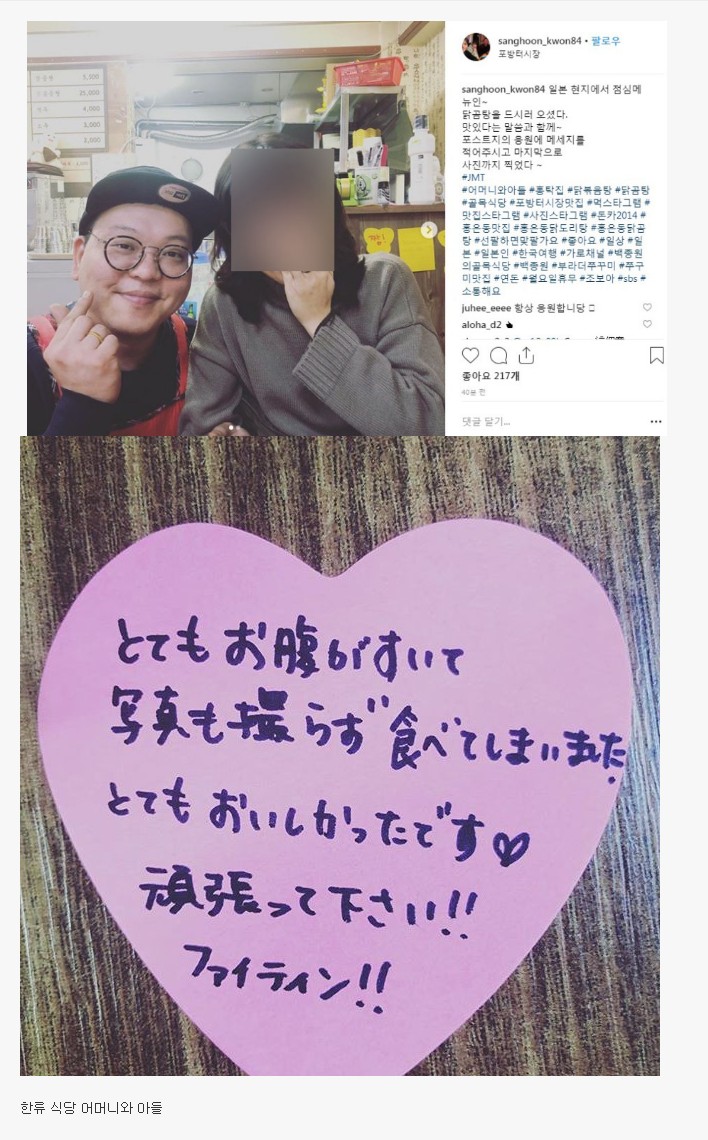 sanghoon_kwon84 • 팔로우
포방터시장
sanghoon_kwon84 일본 현지에서 점심메
뉴인~
닭곰탕을 드시러 오셨다.
맛있다는 말씀과 함께~
포스트지의 응원에 메세지를
적어주시고 마지막으로
사진까지 찍었다 ~
#JMT
#어머니와아들 #홍탁집 #닭볶음탕 #닭곰탕
#골목식당 #포방터시장맛집 #먹스타그램 #
맛집스타그램 #사진스타그램 #돈카2014 #
홍은동맛집 #홍은동닭도리탕 #홍은동닭곰
탕 #선팔하면맞팔가요 #좋아요 #일상 #일
본 #일본인 #한국여행 #가로채널 #백종원
의골목식당 #백종원 #부라더쭈꾸미 #쭈구
미맛집 #연돈 #월요일휴무 #조보아 #sbs #
소통해요
juhee_eeee 항상 응원합니당
aloha_d2
좋아요 217개
40분 전
댓글 달기...
3,500
25,000
4,000
3,000
3,000
とてもお腹がすいて
写真も撮らず食べてしまいました。
とてもおいしかったです♡
頑張って下さい!!
ファイティン!!
한류 식당 어머니와 아들